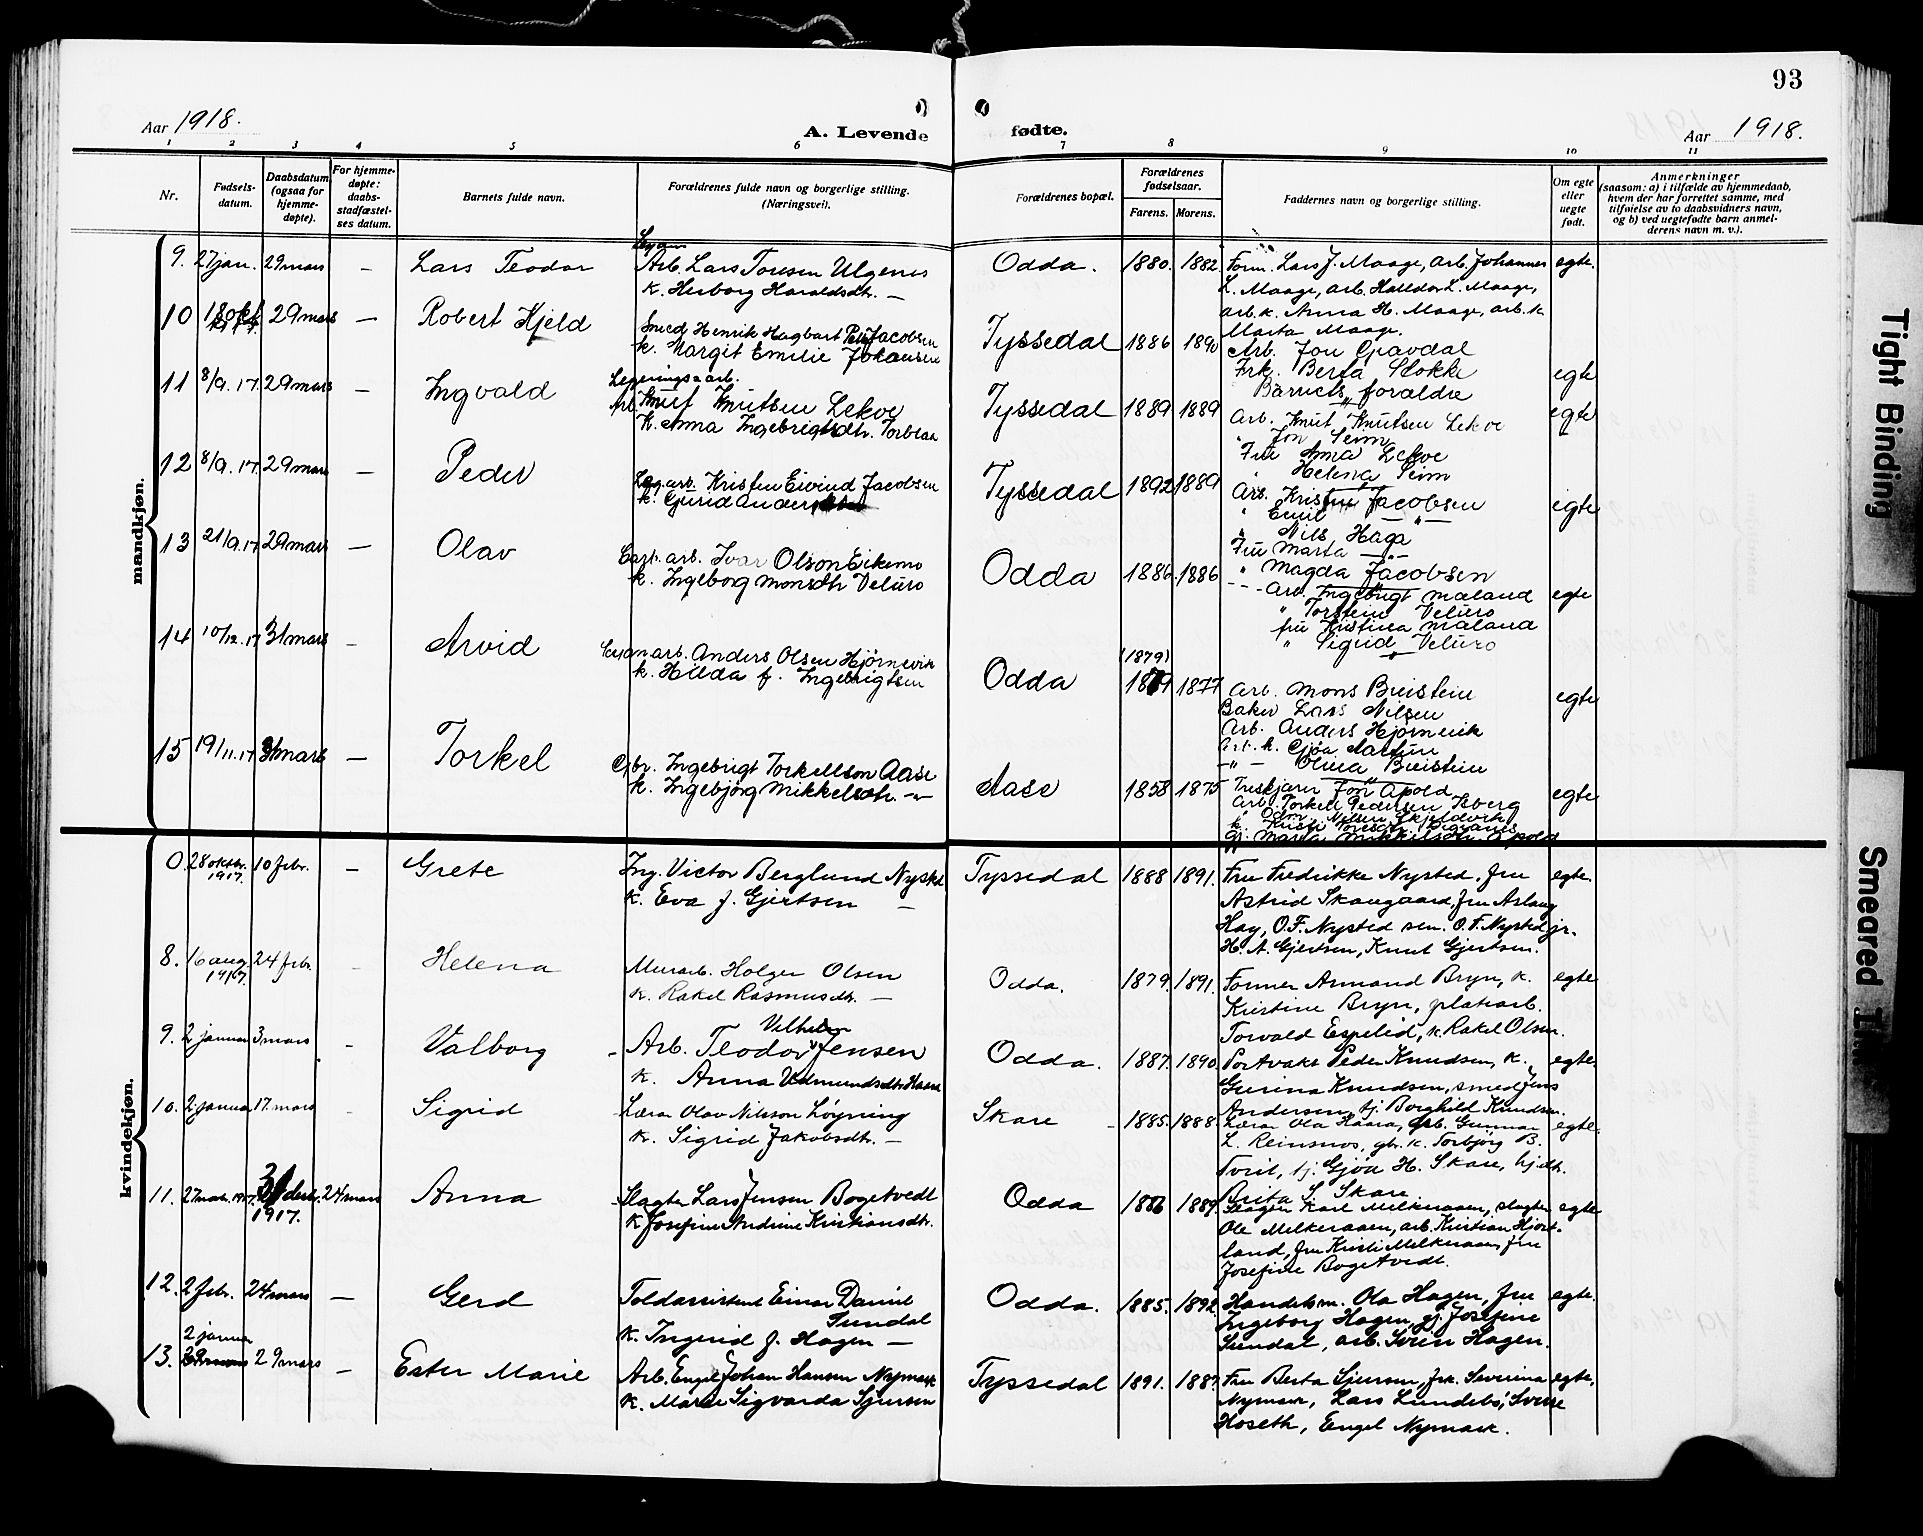 93
Aar 1918.
A. Levende fødte.
Aar 1918.
1 2 3 4 5 6 7 8 9 10 11
Nr.
Fødsels-
datum.
Daabsdatum
(ogsaa for
hjemme-
døpte).
For hjemme-
døpte:
daabs-
stadfæstel-
ses datum.
Barnets fulde navn.
Forældrenes fulde navn og borgerlige stilling.
(Næringsvei).
Forældrenes bopæl.
Forældrenes
fødselsaar.
Farens. Morens.
Faddernes navn og borgerlige stilling.
Om egte
eller
uegte
født.
Anmerkninger
(saasom: a) i tilfælde av hjemmedaab,
hvem der har forrettet samme, med
tilføielse av to daabsvidners navn,
og b) ved uegtefødte barn anmel-
derens navn m. v.).
mandkjøn.
9. 27 jan. 29 mars — Lars Teodor
Arb. Lars Tonesen Ulgenes
k. Herborg Haraldsdtr. —
Odda. 1880. 1882
Form. Lars J. Maage, arb. Johannes
L. Maage, arb. Halldor L. Maage,
arb. k. Anna H. Maage, arb. k.
Marta Maage.
egte.
10 18 okt 29 mars — Robert Kjeld
Smed Henrik Hagbart Jacobsen
k. Margit Emilie Johansen
Tyssedal 1886 1890
Arb. Jon Gravdal
Frk. Berta Slokke
Barnets forældre
egte
11 8/9. 17. 29 mars — Ingvald
Legeringsarb.
Knut Knutsen Lekve
k. Anna Ingebrigtsdtr. Torblaa
Tyssedal 1889 1889
Arb. Knut Knutsen Lekve
" Jon Seim
Fru Anna Lekve
" Helena Seim
egte
12 8/9. 17. 29 mars — Peder
Leg. arb. Kristen Eivind Jacobsen
k. Gurid
Tyssedal 1892 1889
Arb. Kristen Jacobsen
" Emil — " —
" Nils Haga
Fru Marta — " —
" Magda Jacobsen
egte
13 21/9. 17 29 mars — Olav
Carb. arb. Ivar Olson Eikemo
k. Ingeborg Monsdtr Veluro
Odda 1886 1886
Arb. Ingebrigt Mæland
" Torstein Veluro
fru Kristina Mæland
" Sigrid Veluro
egte
14 10/12. 17 31 mars — Arvid
arb. Anders Olsen Hjørnevik
k. Hilda f. Ingebrigtsen
Odda (1879) 1877
Arb. Mons Buistein
Baker Lars Nilsen
Arb. Anders Hjørnevik
Arb. k. Gjøa
— " — Olina Buistein
egte
15 19/11. 17 31 mars — Torkel
Gbr. Ingebrigt Torkellson Aase
k. Ingebjørg Mikkelsdtr. — " —
Aase 1858 1875
Jon Apold
Arb. Torkell Pedersen Isberg
Nilsen Skjeldvik
gj. Marta Mikkelsdtr. Apold
egte
kvindekjøn.
0. 28 oktbr. 1917. 10 febr. — Grete
Ing. Victor Berglund Nysted
k. Eva f. Gjertsen —
Tyssedal 1888 1891.
Fru Fredrikke Nysted, fru
Astrid Skaugaard, fru Aslaug
Hay, O.F. Nysted sen. O.F. Nysted jr.
H. A. Gjertsen, Knut Gjertsen.
egte.
8. 16 aug 1917. 24 febr. — Helena
Murarb. Holger Olsen
k. Rakel Rasmusdtr. —
Odda. 1879. 1891.
Former Armand Bryn, k.
Kristine Bryn, platearb.
Torvald Espelid, k. Rakel Olsen.
egte
9. 2 januar 3 mars — Valborg
Vilhelm
Arb. Teodor Jensen
k. Anna
Odda. 1887. 1890
Portvakt Peder Knudsen, k.
Gurina Knudsen, smed Jens
Andersen, tj. Borghild Knudsen.
egte
10. 2 januar 17. mars — Sigrid
Lærer Olav Nilsson Løyning
k. Sigrid Jakobsdtr. —
Skare 1885. 1888.
Lærer Ola Haara, gbr. Gunnar
L. Reinsnos, gbr. k. Torbjørg B.
Tveit, tj. Gjøa H. Skare, hj.dtr.
Brita S. Skare
egte.
11. 27 1917. 31 desbr. 1917. 24 mars Anna
Slagter Lars Jensen Bogetvedt
k. Josefine Andrine Kristiansdtr.
Odda 1886 1889.
Slagter Karl Melkeraaen, slagter
Ole Melkeraaen, arb. Kristian Hjort-
land, fru Kristi Melkeraaen, fru
Josefine Bogetvedt.
egte
12. 2 febr. 24 mars — Gerd
Toldassistent Einar Daniel
Sundal
k. Ingerid f. Hagen —
Odda. 1885. 1892.
Handelsm. Ola Hagen, fru
Ingeborg Hagen, gj. Josefine
Sundal, arb. Svein Hagen.
egte.
2 januar
13. 29 mars — Ester Marie
Arb. Engel Johan Hansen Nymark
k. Marie Sigvarda Sjursen
Tyssedal 1891. 1887.
Fru Berta Sjursen, frk. Severina
Nymark, Lars Lundebø, Sverre
Hoseth, Engel Nymark.
egte.
Tight Binding
Smeared